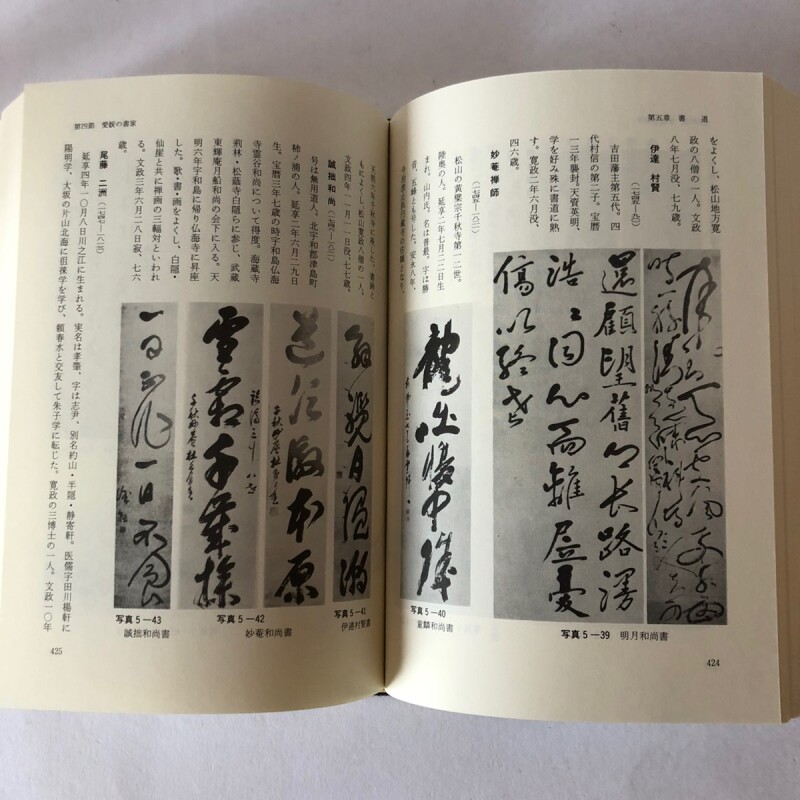 第五章　書　　道
をよくし、松山地方寛
政の八僧の一人。文政
八年七月没、七九歳。
伊達　村賢（一七四五―九〇）
吉田藩主第五代。四
代村信の第二子。宝暦
一三年襲封。天資英明、
学を好み殊に書道に熟
す。寛政二年六月没、
四六歳。
妙菴禅師（一七四五―一八二一）
松山の黄檗宗千秋寺第一二世。
陸奥の人。延享二年七月二二日生
まれ、山内氏。名は普最、字は勝
還顧望舊鄉長路漫
浩浩同心而離居憂
傷以終老
写真5―39　明月和尚書
写真5―40
424
第四節　愛媛の書家
文政四年一一月一一日没、七七歳。
誠拙和尚（一七四五―一八二〇）
号は無用道人。北宇和郡津島町
柿ノ浦の人。延享二年六月二九日
生。宝暦三年七歳の時宇和島仏海
寺霊谷和尚について得度。海蔵寺
荊林・松蔭寺白隠らに参じ、武蔵
東輝庵月船和尚の会下に入る。天
明六年宇和島に帰り仏海寺に昇座
した。歌・書・画をよくし、白隠・
仙崖と共に禅画の三輻対といわれ
る。文政三年六月二八日寂、七六
歳。
尾藤　二洲（一七四七―一八一三）
延享四年一〇月八日川之江に生まれる。実名は孝肇、字は志尹、別名約山・半隠・静寄軒。医儒宇田川楊軒に
陽明学、大坂の片山北海に徂徠学を学び、頼春水と交友して朱子学に転じた。寛政の三博士の一人。文政一〇年
写真5―41
伊達村賢書
雪霜千年操
写真5―42
妙菴和尚書
一日不作一日不食
写真5―43
誠拙和尚書
425